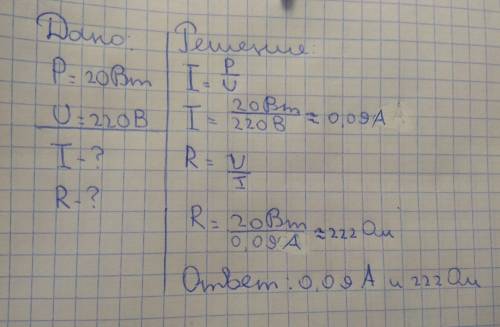 Дано:
P = 20Вт
U = 220В
I - ?
R - ?
Решение:
I = P/U
I = 20Вт/220В ≈ 0,09А
R = U/I
R = 20Вт/0,09А ≈ 222 Ом
Ответ: 0,09 А и 222 Ом